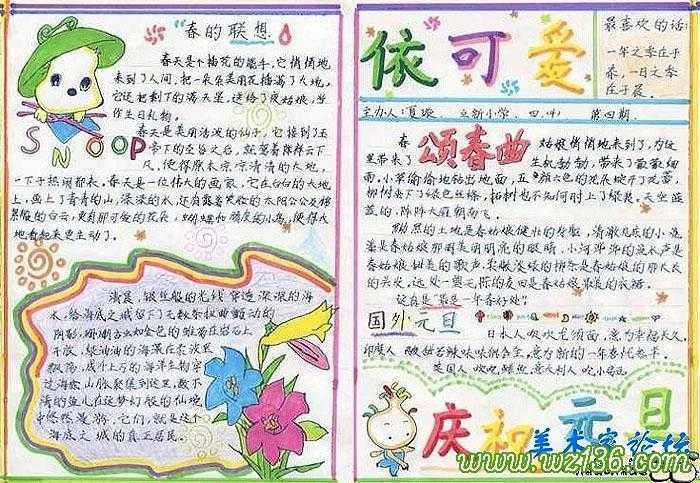 春的联想
春天是个插花的能手,它悄悄地
来到了人间,把一朵朵美丽花插满了大地。
它还把剩下的满天星,送给了夜姑娘,当
作生日礼物。
SNOOP
春天是美丽活泼的仙子,它接到了玉
帝下的圣旨之后,就驾着祥云下
凡,使得原本凉凉清清的大地,
一下子热闹起来。春天是一位伟大的画家,它在白白的大地
上,画上了青青的山,绿绿的水,还有露着笑脸的太阳公公及棉
景般的白云,更有那可爱的花朵,蝴蝶和顽皮的小鸟,使得大
地看起来更生动了。
清晨,银丝般的光线穿透深深的海
水,给海底之城留下了无数条扭曲颤动的
阴影,珊瑚古树如金色的雏菊在岩石上
开放,绿油油的海藻在水波里
飘荡,成千上万的海洋生物穿
过海底山脉聚集到这里,数不
清的鱼儿在这梦幻般的仙境
中悠然漫游。它们,就是这个
海底之城的真正居民。
依可爱
最喜欢的话:
一年之季在于
春,一日之季
在于晨。
主办人:夏璇 立新小学 四.(4) 第四期
颂春曲
春姑娘悄悄地来到了,为这
里带来了生机勃勃,带来了蒙蒙细
雨,小草偷偷地钻出地面,五颜六色的花朵绽开了花蕾,
柳树垂下了绿色丝绦,柘树也不知何时上了绿装。天空蓝
蓝的,阵阵大雁朝南飞。
黝黑的土地是春姑娘健壮的身躯,清澈见底的小溪
流是春姑娘那明亮明亮的眼睛,小河潺潺的流水声是
春姑娘甜美的歌声,柔嫩淡绿的柳条是春姑娘的那长长
的头发,这处一望无际的麦田是春姑娘最美的衣裙。
这真是"最是一年春好处"。
国外元旦
日本人吹吹龙须面,意为幸福长久,
意为新的一年喜忧参半。
英国人
庆和元旦
美术家论坛
www.wz186.com